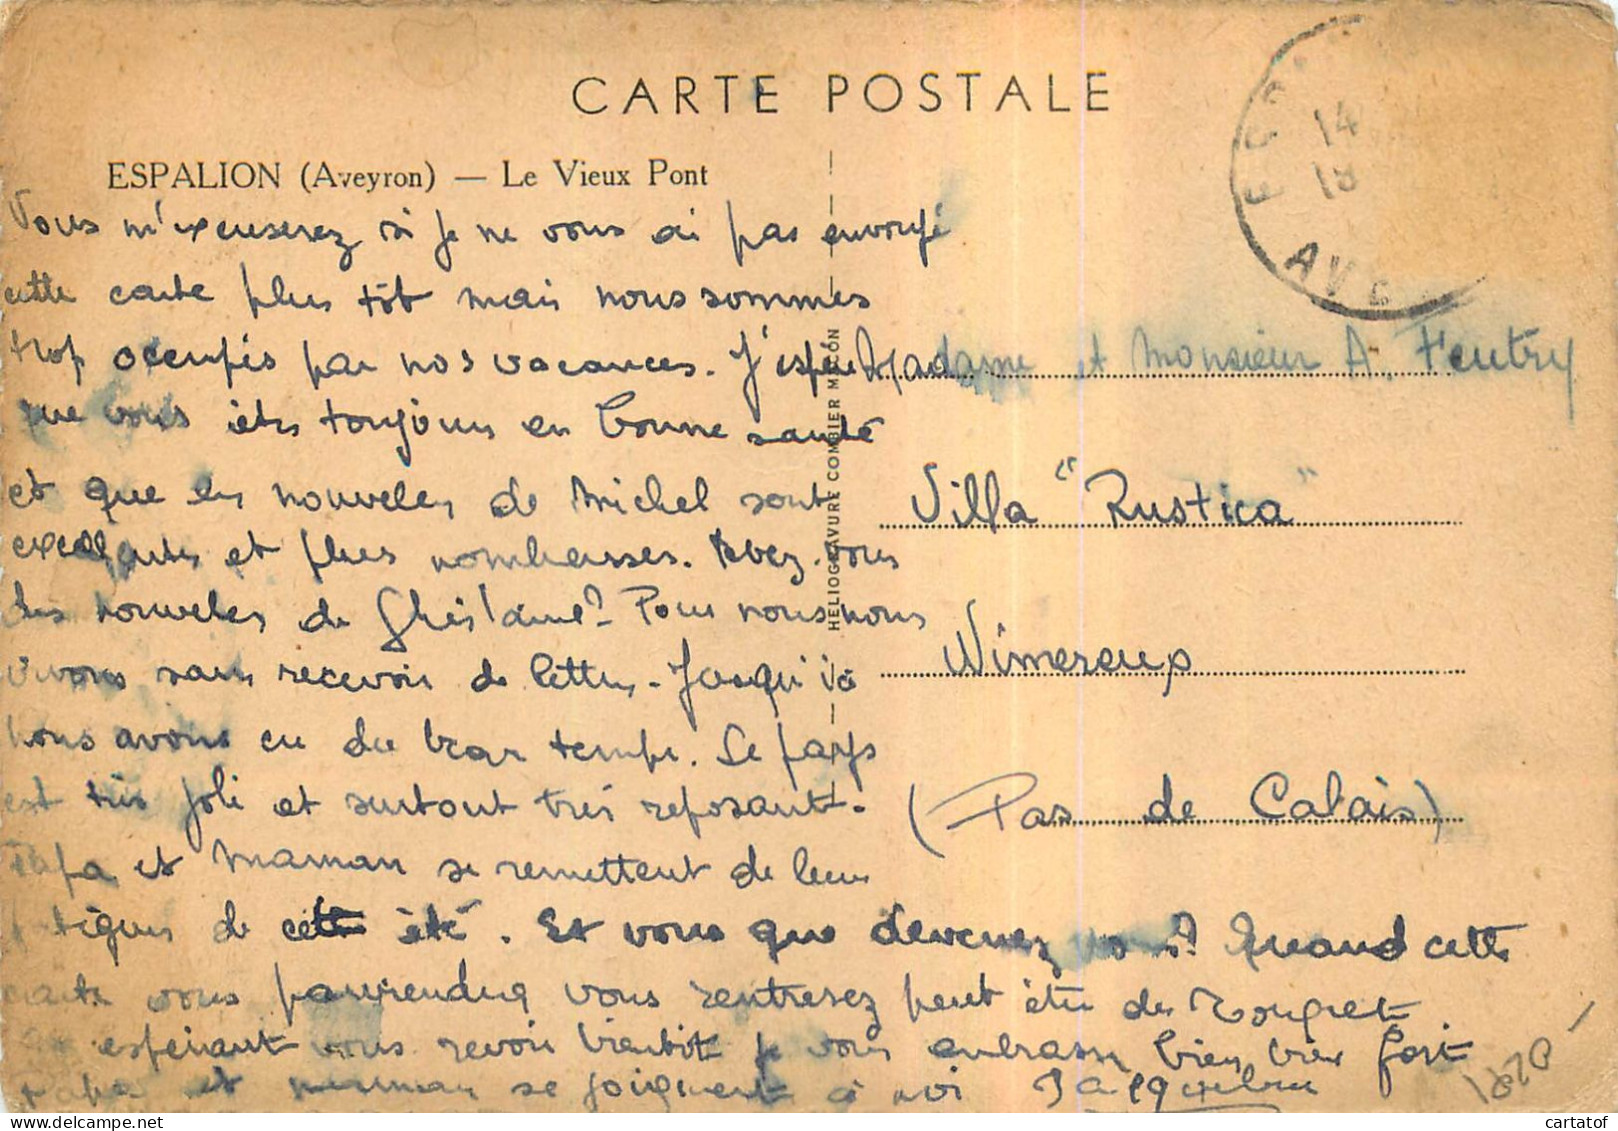 CARTE POSTALE
ESPALION (Aveyron) — Le Vieux Pont
14
18
AVE
Vous m'excuserez si je ne vous ai pas envoyé
cette carte plus tôt mais nous sommes
trop occupés par nos vacances. J'espère
que vous êtes toujours en bonne santé
et que les nouvelles de Michel sont
excellentes et plus nombreuses. Avez-vous
des nouvelles de Ghislaine? Pour nous nous
vivons sans recevoir de lettres. Jusqu'ici
nous avons eu du beau temps. Le pays
est très joli et surtout très reposant.
Papa et Maman se remettent de leurs
fatigues de cette été. Et vous que devenez vous? Quand cette
carte vous parviendra vous rentrerez peut être de
espérant vous revoir bientôt je vous embrasse bien bien fort
Papa et maman se joignent à moi Jacqueline
HELIOGRAVURE COMBIER MACON
Madame et Monsieur A. Feutry
Villa "Rustica"
Wimereux
(Pas de Calais)
cartatof